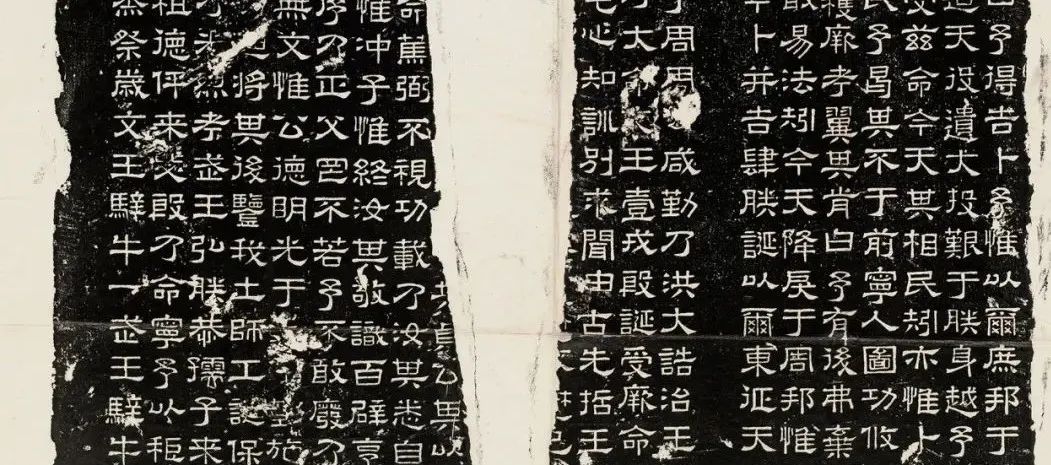 曰予得吉卜予惟以爾庶邦于
造天役遺大投艱于朕身越予
受茲命今天其相民矧亦惟卜
民予曷其不于前寧人圖功攸
獲厥孝翼其肯曰予有後弗棄
敢易法矧今天降戾于周邦惟
今卜并吉肆朕誕以爾東征天
于周周咸勤乃洪大誥治王
乃大命文王壹戎殷誕受厥命
宅心知訓別求聞由古先哲王
貞公其以
命篤弼不視功載乃汝其悉自
惟沖子惟終汝其敬識百辟享
序乃正父罔不若予不敢廢乃
無文惟公德明光于上施
迪將其後鑒我士師工誕保
烈考武王弘朕恭孺子來
祖德伻來毖殷乃命寧予以秬
烝祭歲文王騂牛一武王騂牛